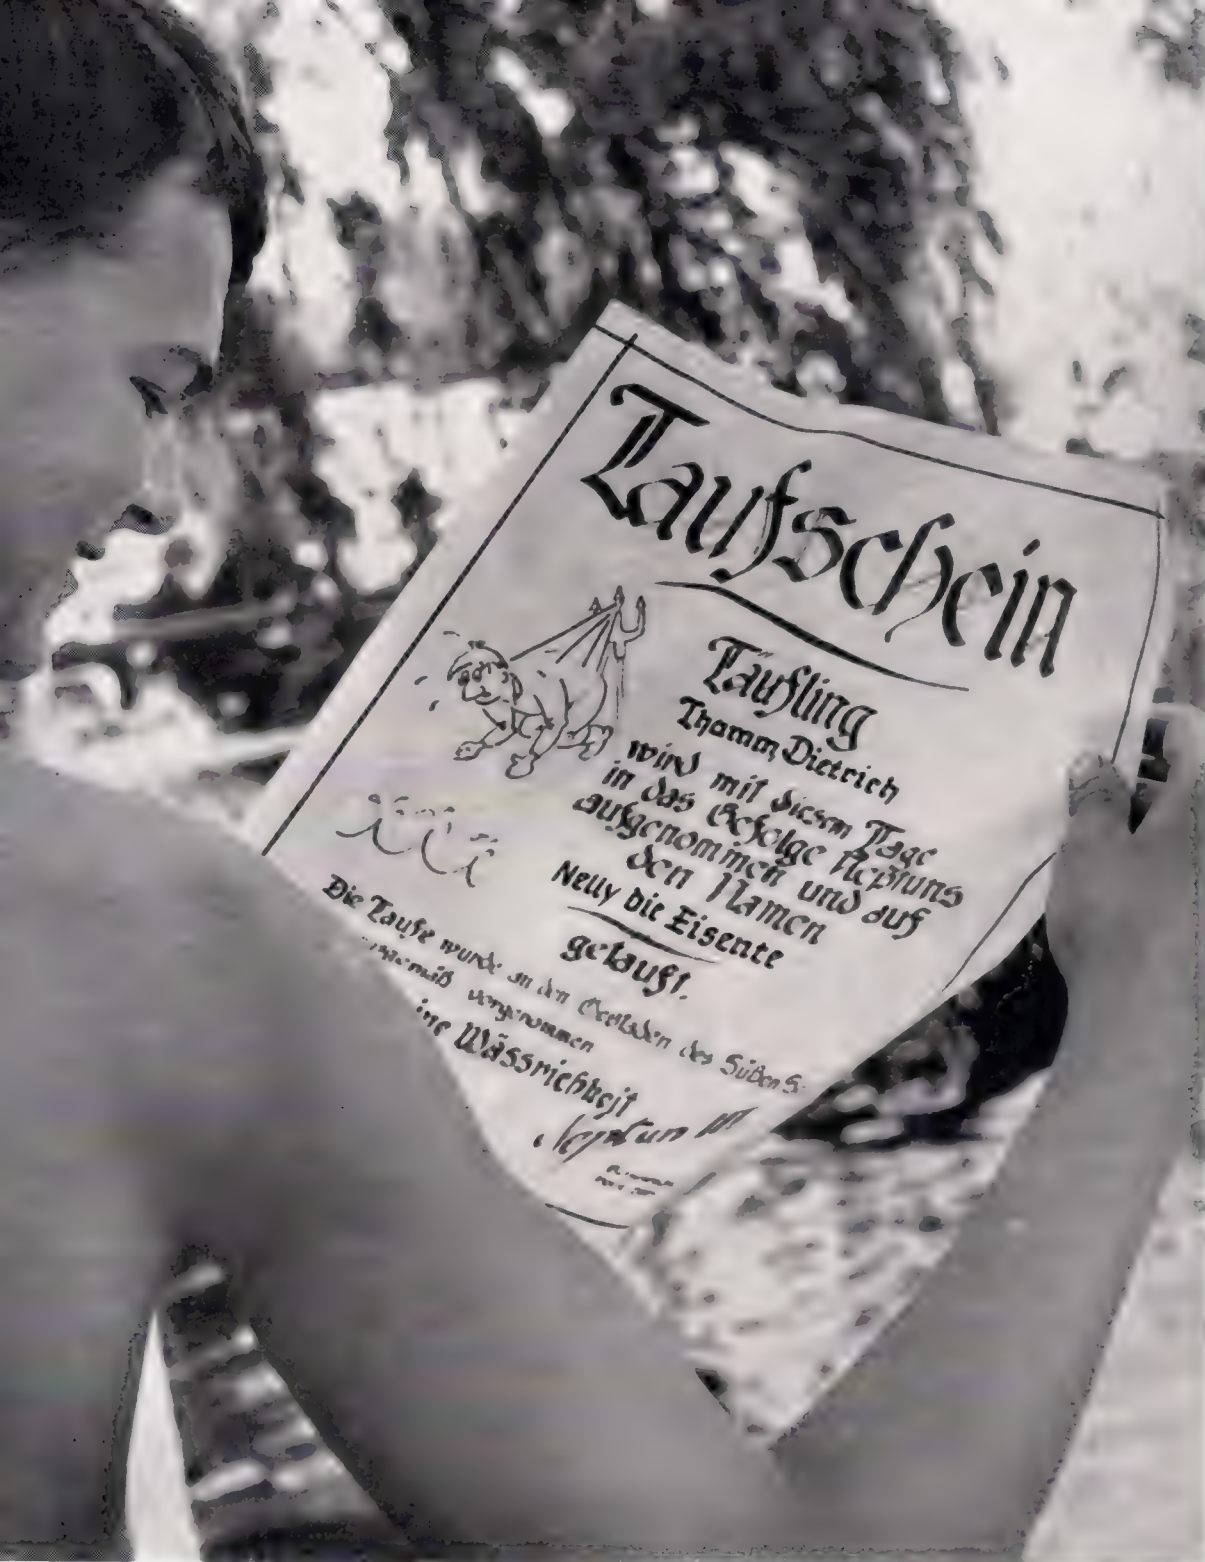 Taufschein
Täufling
Thamm, Dietrich
wird mit diesem Tage
in das Gefolge Neptuns
aufgenommen und auf
den Namen
Nelly die Eisente
getauft.
Die Taufe wurde an den Gestaden des Süßen S.
gemäß vorgenommen
ine Wässrichkeit
Neptun III